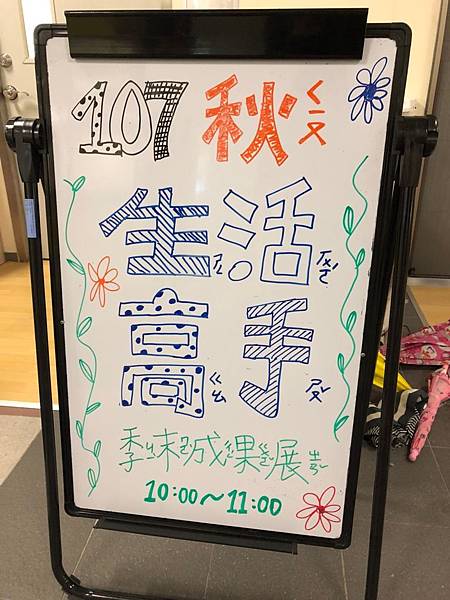 107 秋 ㄑㄧㄡ
生活 ㄏㄨㄛˊ
高 ㄍㄠ 手 ㄕㄡˇ
季末成果展
10:00~11:00